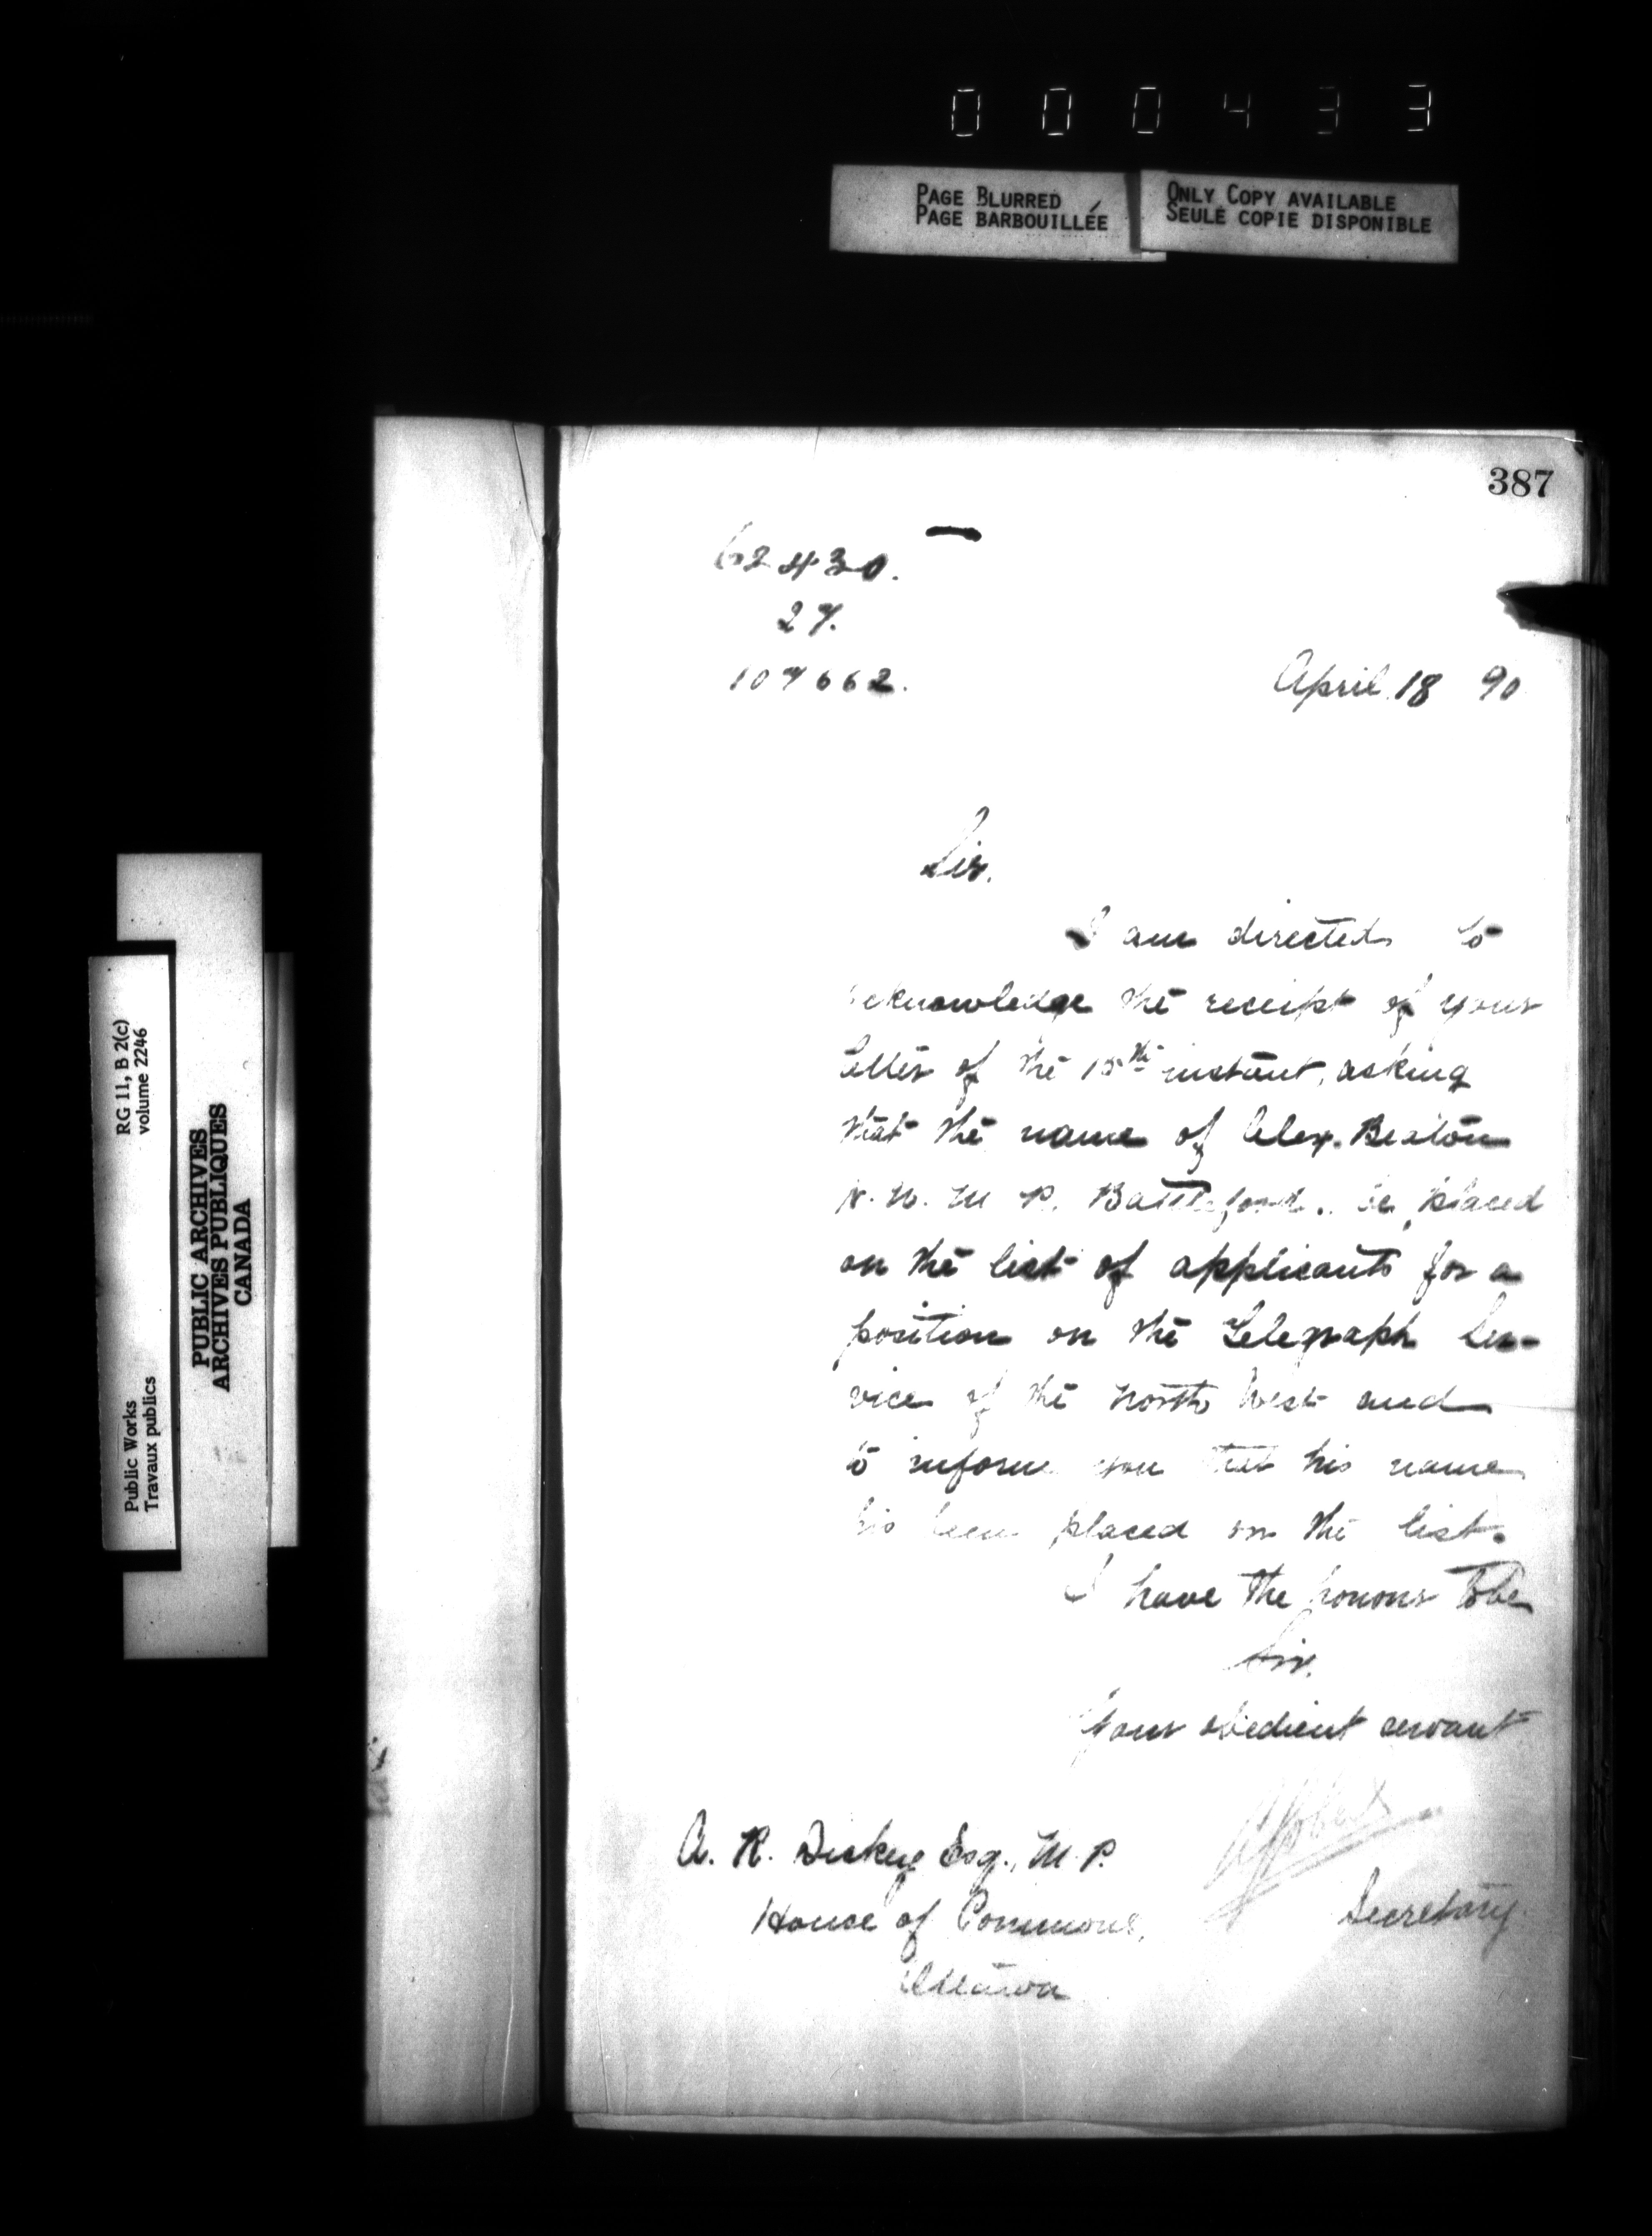 000433
PAGE BLURRED
PAGE BARBOUILLÉE
ONLY COPY AVAILABLE
SEULE COPIE DISPONIBLE
387
62430.
27.
107662.
April 18 90
Sir.
I am directed to
acknowledge the receipt of your
letter of the 15th instant, asking
that the name of Alex. Bexton
N. W. M P. Battleford.. be placed
on the list of applicants for a
position on the Telegraph Ser-
vice of the North West and
to inform you that his name
has been placed on the list.
I have the honour to be
Sir,
Your obedient servant
Secretary.
A. R. Dickey Esq., M. P.
House of Commons,
Ottawa
RG 11, B 2(c)
volume 2246
Public Works
Travaux publics
PUBLIC ARCHIVES
ARCHIVES PUBLIQUES
CANADA